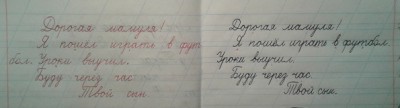 Дорогая мамуля!
Я пошёл играть в фут
бол. Уроки выучил.
Буду через час.
Твой сын.
Дорогая мамуля!
Я пошёл играть в футбол.
Уроки выучил.
Буду через час.
Твой сын.